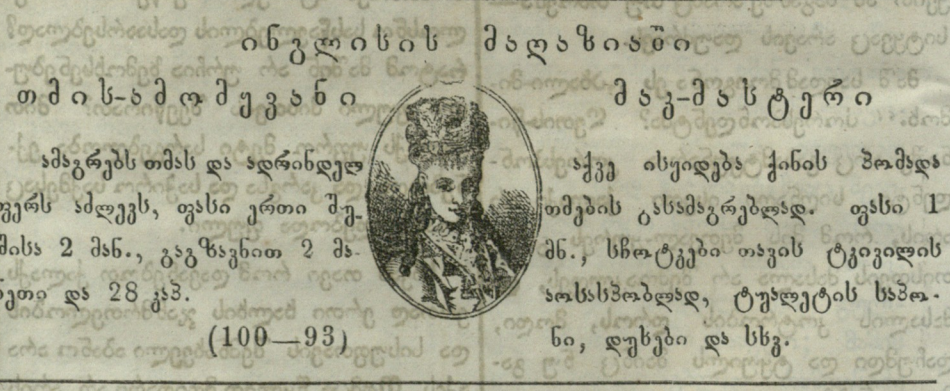 ინგლისის მაღაზიაში
თმის-ამომყვანი
ამაგრებს თმას და ადრინდელ
ფერს აძლევს, ფასი ერთი შუ-
შისა 2 მან., გაგზავნით 2 მა-
ნეთი და 28 კაპ.
(100—93)
მაკ-მასტერი
აქვე ისყიდება ქინის პომადა
თმების გასამაგრებლად. ფასი 1
მნ., სჩოტკები თავის ტკივილის
მოსასპობლად, ტუალეტის საპო-
ნი, დუხები და სხვ.